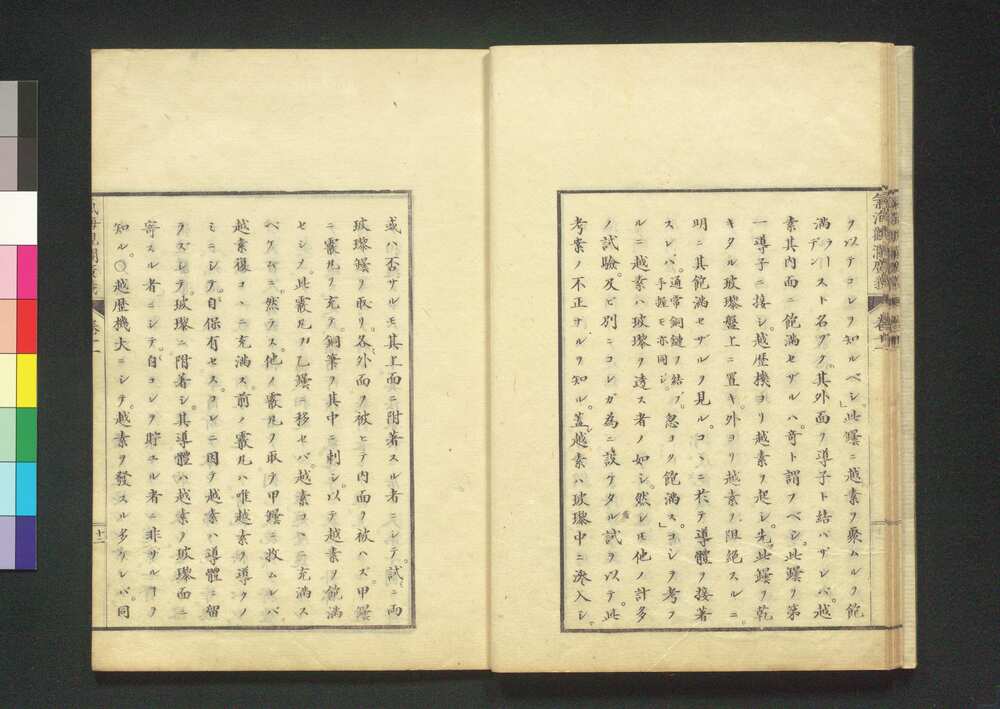 ヲ以テコレヲ知ルベシ」此罎ニ越素ヲ聚ムルヲ飽
満ラーデンストト名ヅク其外面ヲ導子ト結バザレバ越
素其内面ニ飽満セザルハ奇ト謂フベシ此罎ヲ第
一導子ニ接シ越歴機ヨリ越素ヲ起シ先此罎ヲ乾
キタル玻瓈盤上ニ置キ外ヨリ越素ヲ阻絶スルニ
明ニ其飽満セザルヲ見ルコヽニ於テ導體ヲ接著
スレバ通常銅鏈ヲ結ブ手握モ亦同シ忽ヨク飽満ス」コレヲ考フ
ルニ越素ハ玻瓈ヲ透ス者ノ如シ然レ𪜈他ノ計多
ノ試驗及ビ別ニコレガ為ニ設ケタル試ヲ以テ此
考案ノ不正ナルヲ知ル蓋越素ハ玻瓈中ニ派入シ
或ハ否ザルモ其上面ニ附著スル者ニシテ試ニ両
玻瓈罎ヲ取リ各外面ヲ被ヒテ内面ヲ被ハズ甲罎
ニ霰丸ヲ充テ銅筆ヲ其中ニ刺シ以テ越素ヲ飽満
セシメ此霰丸ヲ乙罎ニ移セバ越素コヽニ充満ス
ベクムニ然ラス他ノ霰丸ヲ取テ甲罎ニ救ムレバ
越素復コヽニ充満ス前ノ霰丸ハ唯越素ヲ導クノ
ミニシテ自保有セスコレニ因テ越素ハ導體ニ留
ラズシテ玻瓈ニ附着シ其導體ハ越素ノ玻瓈面ニ
寄スル者ニシテ自コレヲ貯エル者ニ非ザルヿヲ
知ル○越歴機大ニシテ越素ヲ發スル多ケレバ同
氣海觀瀾廣義
卷十一
十二